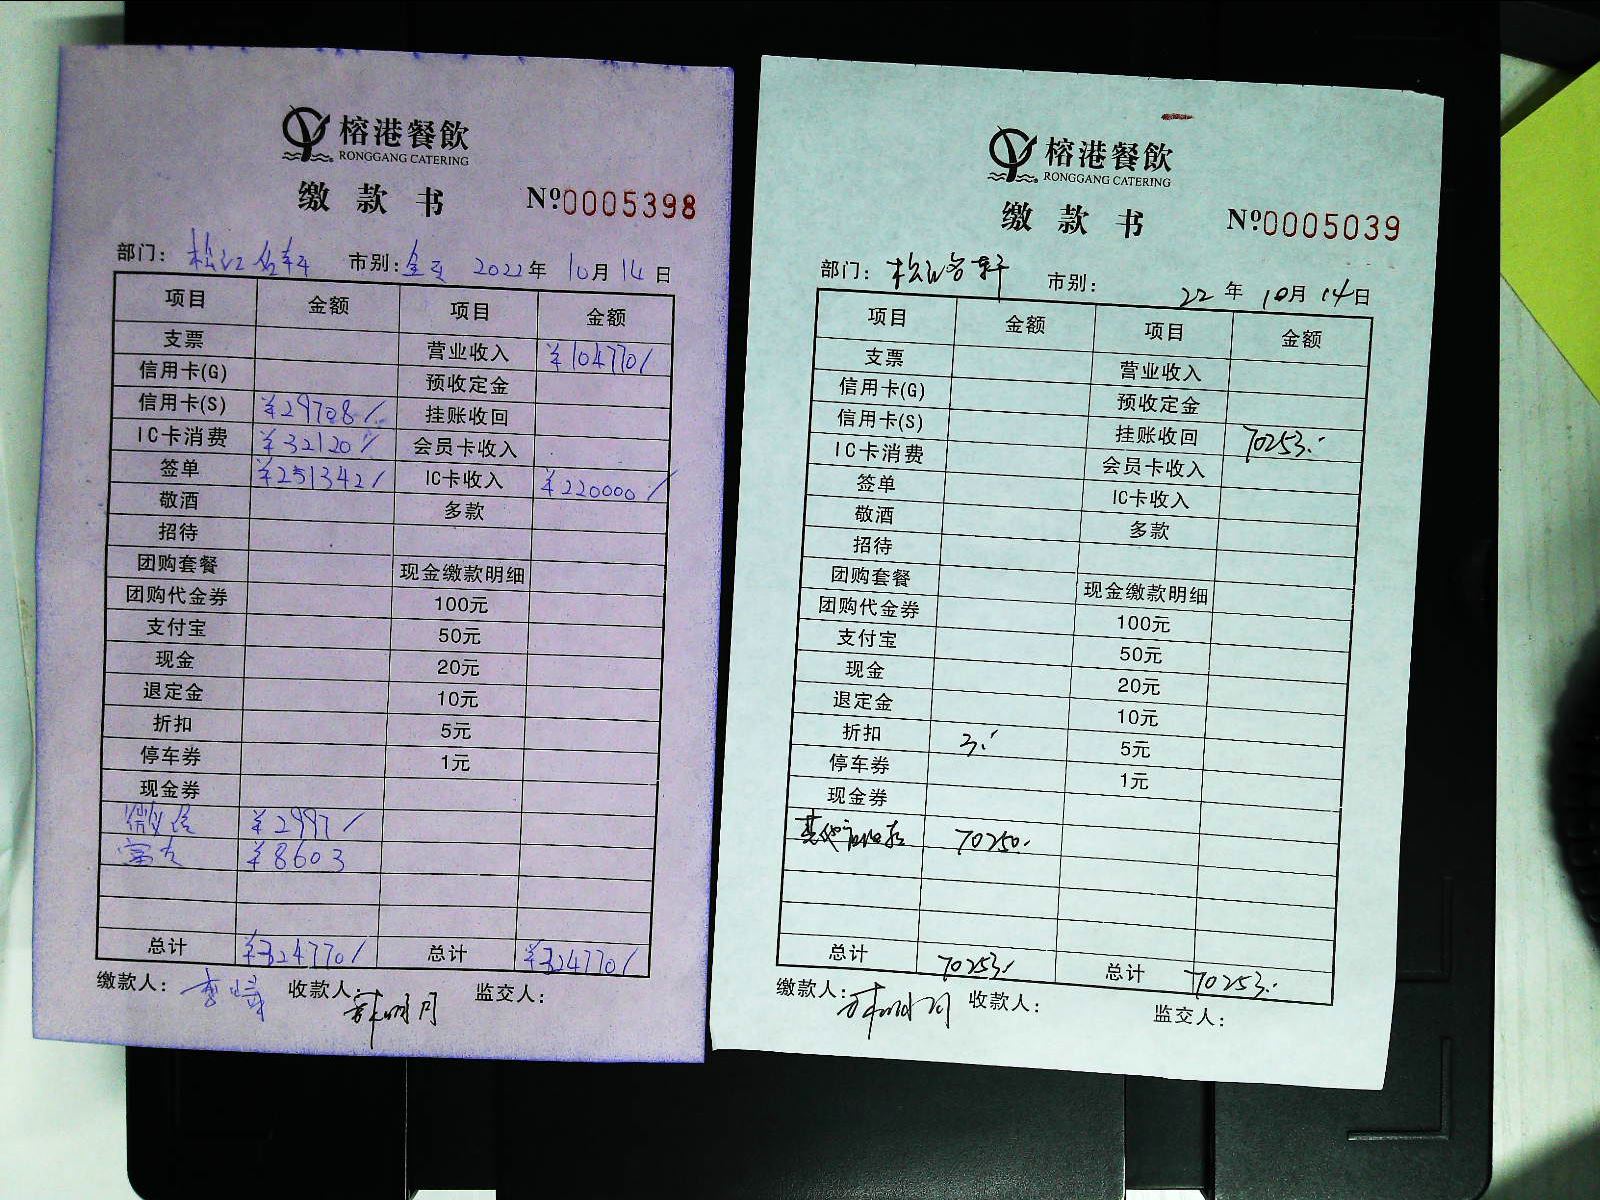 榕港餐飲
RONGGANG CATERING
缴款书 Nº0005398
部门：松江名轩 市别：全天 2022年10月14日
项目 金额 项目 金额
支票 营业收入 ¥104770/
信用卡(G) 预收定金
信用卡(S) ¥29708/ 挂账收回
IC卡消费 ¥32120/ 会员卡收入
签单 ¥251342/ IC卡收入 ¥220000/
敬酒 多款
招待
团购套餐 现金缴款明细
团购代金券 100元
支付宝 50元
现金 20元
退定金 10元
折扣 5元
停车券 1元
现金券
微信 ¥2997/
¥8603
总计 ¥324770/ 总计 ¥324770/
缴款人： 收款人： 监交人：
榕港餐飲
RONGGANG CATERING
缴款书 Nº0005039
部门：松江名轩 市别： 22年10月14日
项目 金额 项目 金额
支票 营业收入
信用卡(G) 预收定金
信用卡(S) 挂账收回 70253.
IC卡消费 会员卡收入
签单 IC卡收入
敬酒 多款
招待
团购套餐 现金缴款明细
团购代金券 100元
支付宝 50元
现金 20元
退定金 10元
折扣 3. 5元
停车券 1元
现金券
70250.
总计 70253. 总计 70253.
缴款人： 收款人： 监交人：